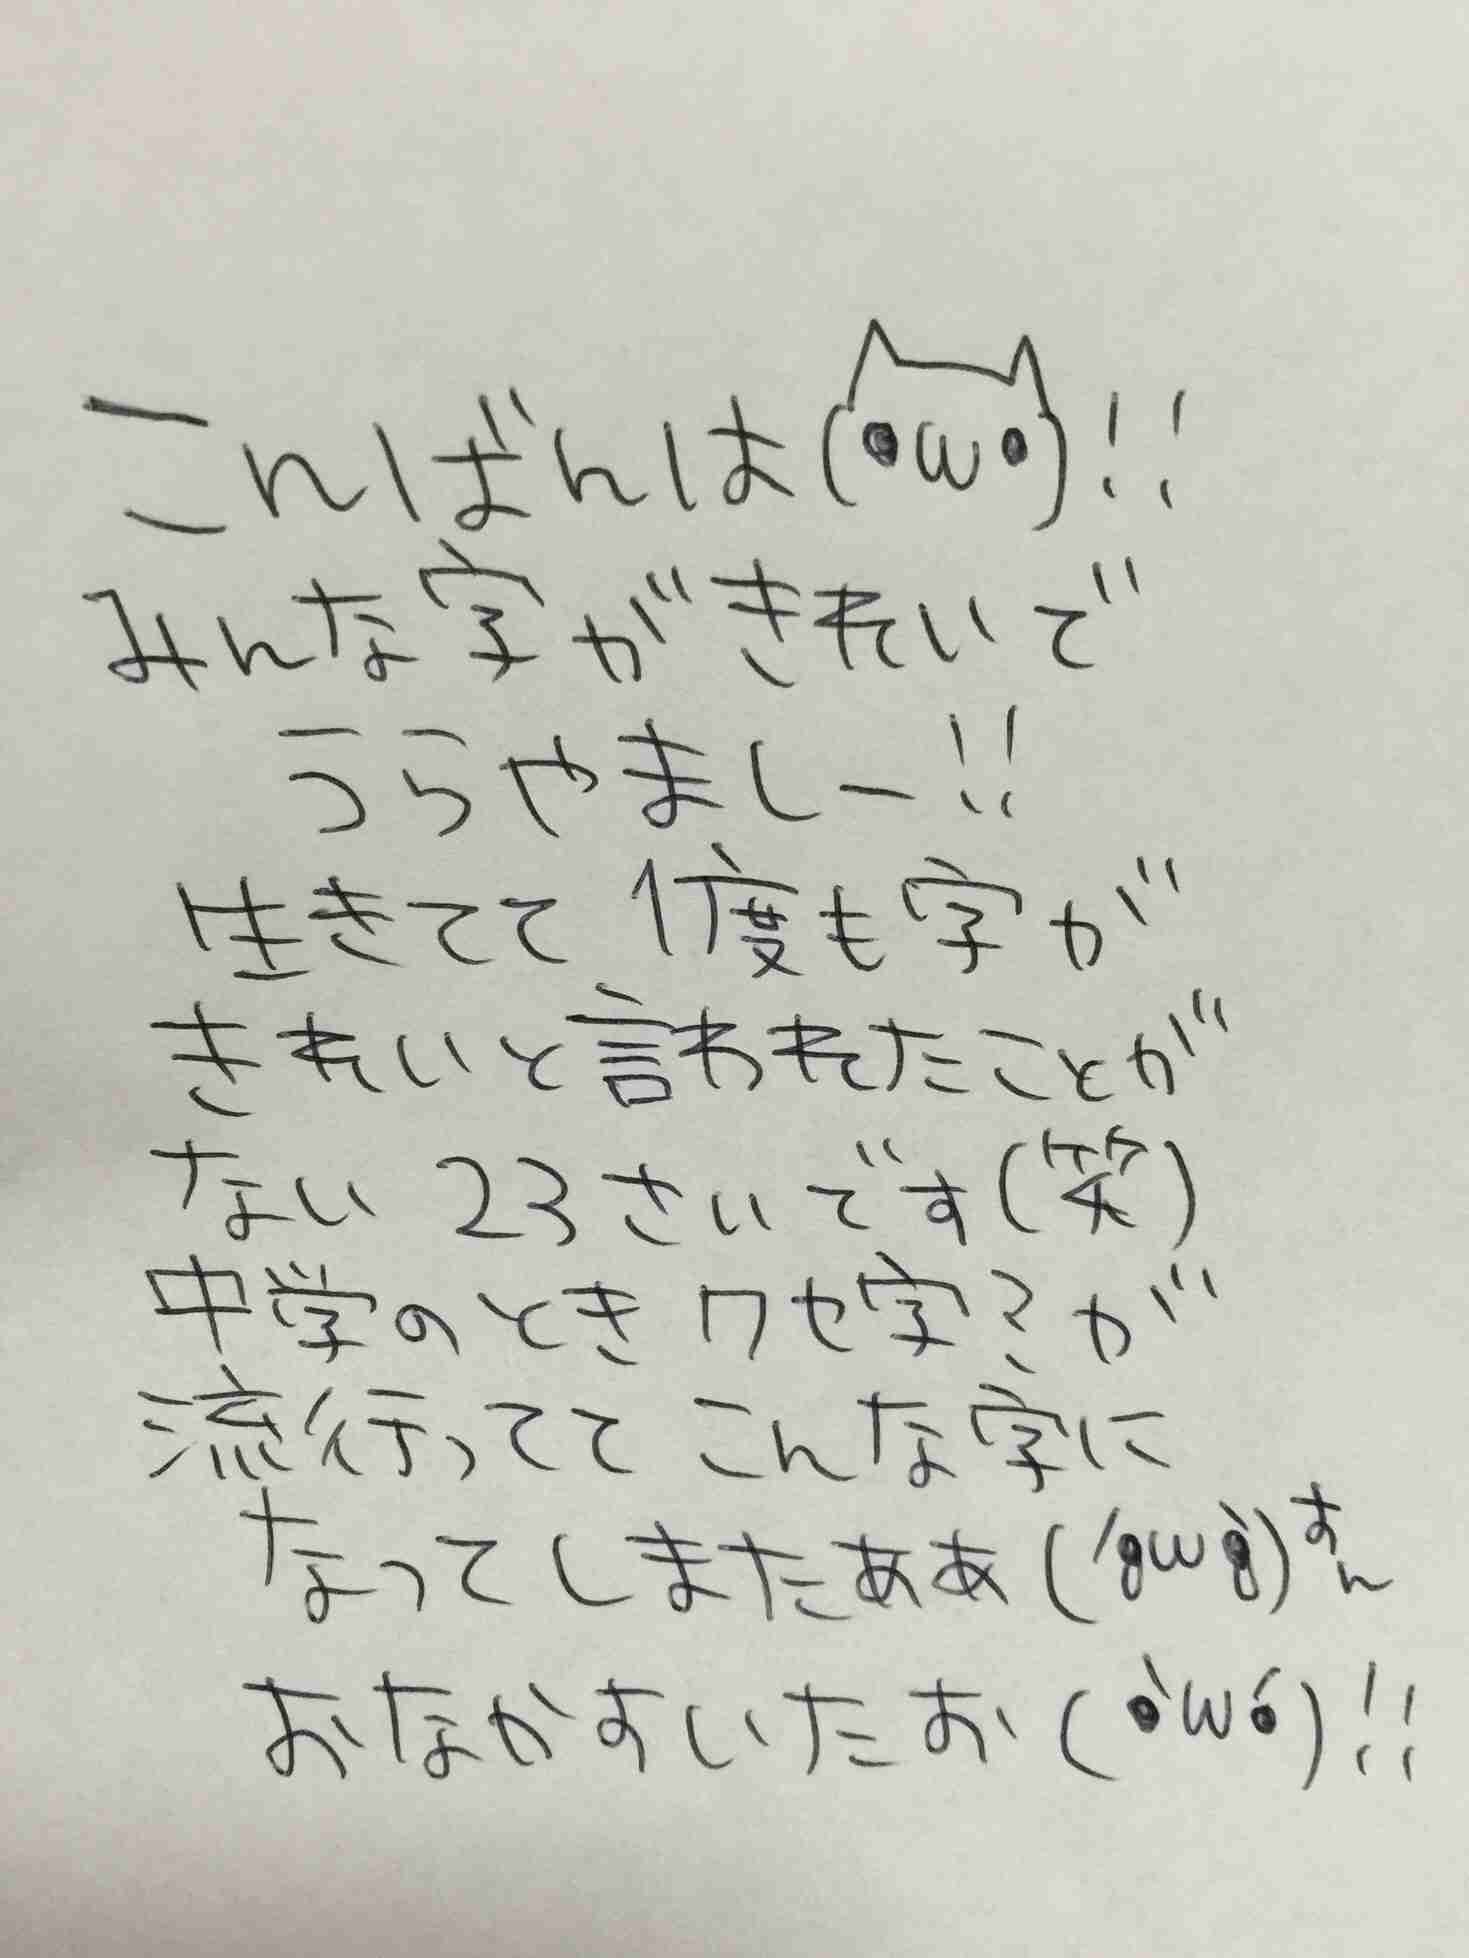 こんばんは(•ω•)!!
みんな字がきれいで
うらやましー!!
生きてて1度も字が
きれいと言われたことが
ない23さいです(笑)
中学のときクセ字?が
流行っててこんな字に
なってしまたぁぁ(´;ω;`)すん
おなかすいたお(•̀ω•́)!!